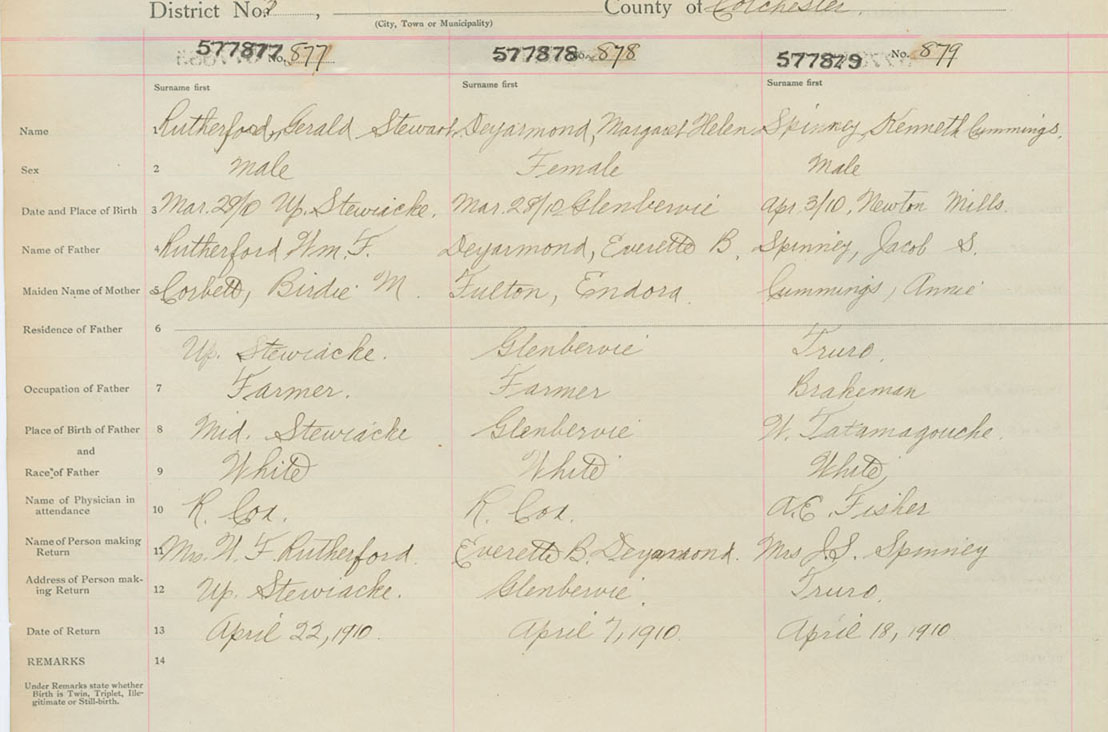 District No. 2, County of Colchester.
(City, Town or Municipality)
577877 No. 877 577878 No. 878 577879 No. 879
Surname first Surname first Surname first
Name 1 Rutherford, Gerald Stewart Deyarmond, Margaret Helen Spinney, Kenneth Cummings.
Sex 2 Male Female Male
Date and Place of Birth 3 Mar. 29/10 Up. Stewiacke. Mar. 28/10 Glenbervie Apr. 3/10, Newton Mills.
Name of Father 4 Rutherford Wm. F. Deyarmond, Everette B. Spinney, Jacob S.
Maiden Name of Mother 5 Corbett, Birdie M. Fulton, Endora. Cummings, Annie
Residence of Father 6
Up. Stewiacke. Glenbervie Truro.
Occupation of Father 7 Farmer. Farmer Brakeman
Place of Birth of Father 8 Mid. Stewiacke Glenbervie W. Tatamagouche.
and
Race of Father 9 White White White
Name of Physician in attendance 10 R. Cox. R. Cox. A.E. Fisher
Name of Person making Return 11 Mrs. W. F. Rutherford. Everette B. Deyarmond. Mrs J.S. Spinney
Address of Person making Return 12 Up. Stewiacke. Glenbervie Truro.
Date of Return 13 April 22, 1910. April 7, 1910. April 18, 1910
REMARKS 14
Under Remarks state whether
Birth is Twin, Triplet, Ille-
gitimate or Still-birth.